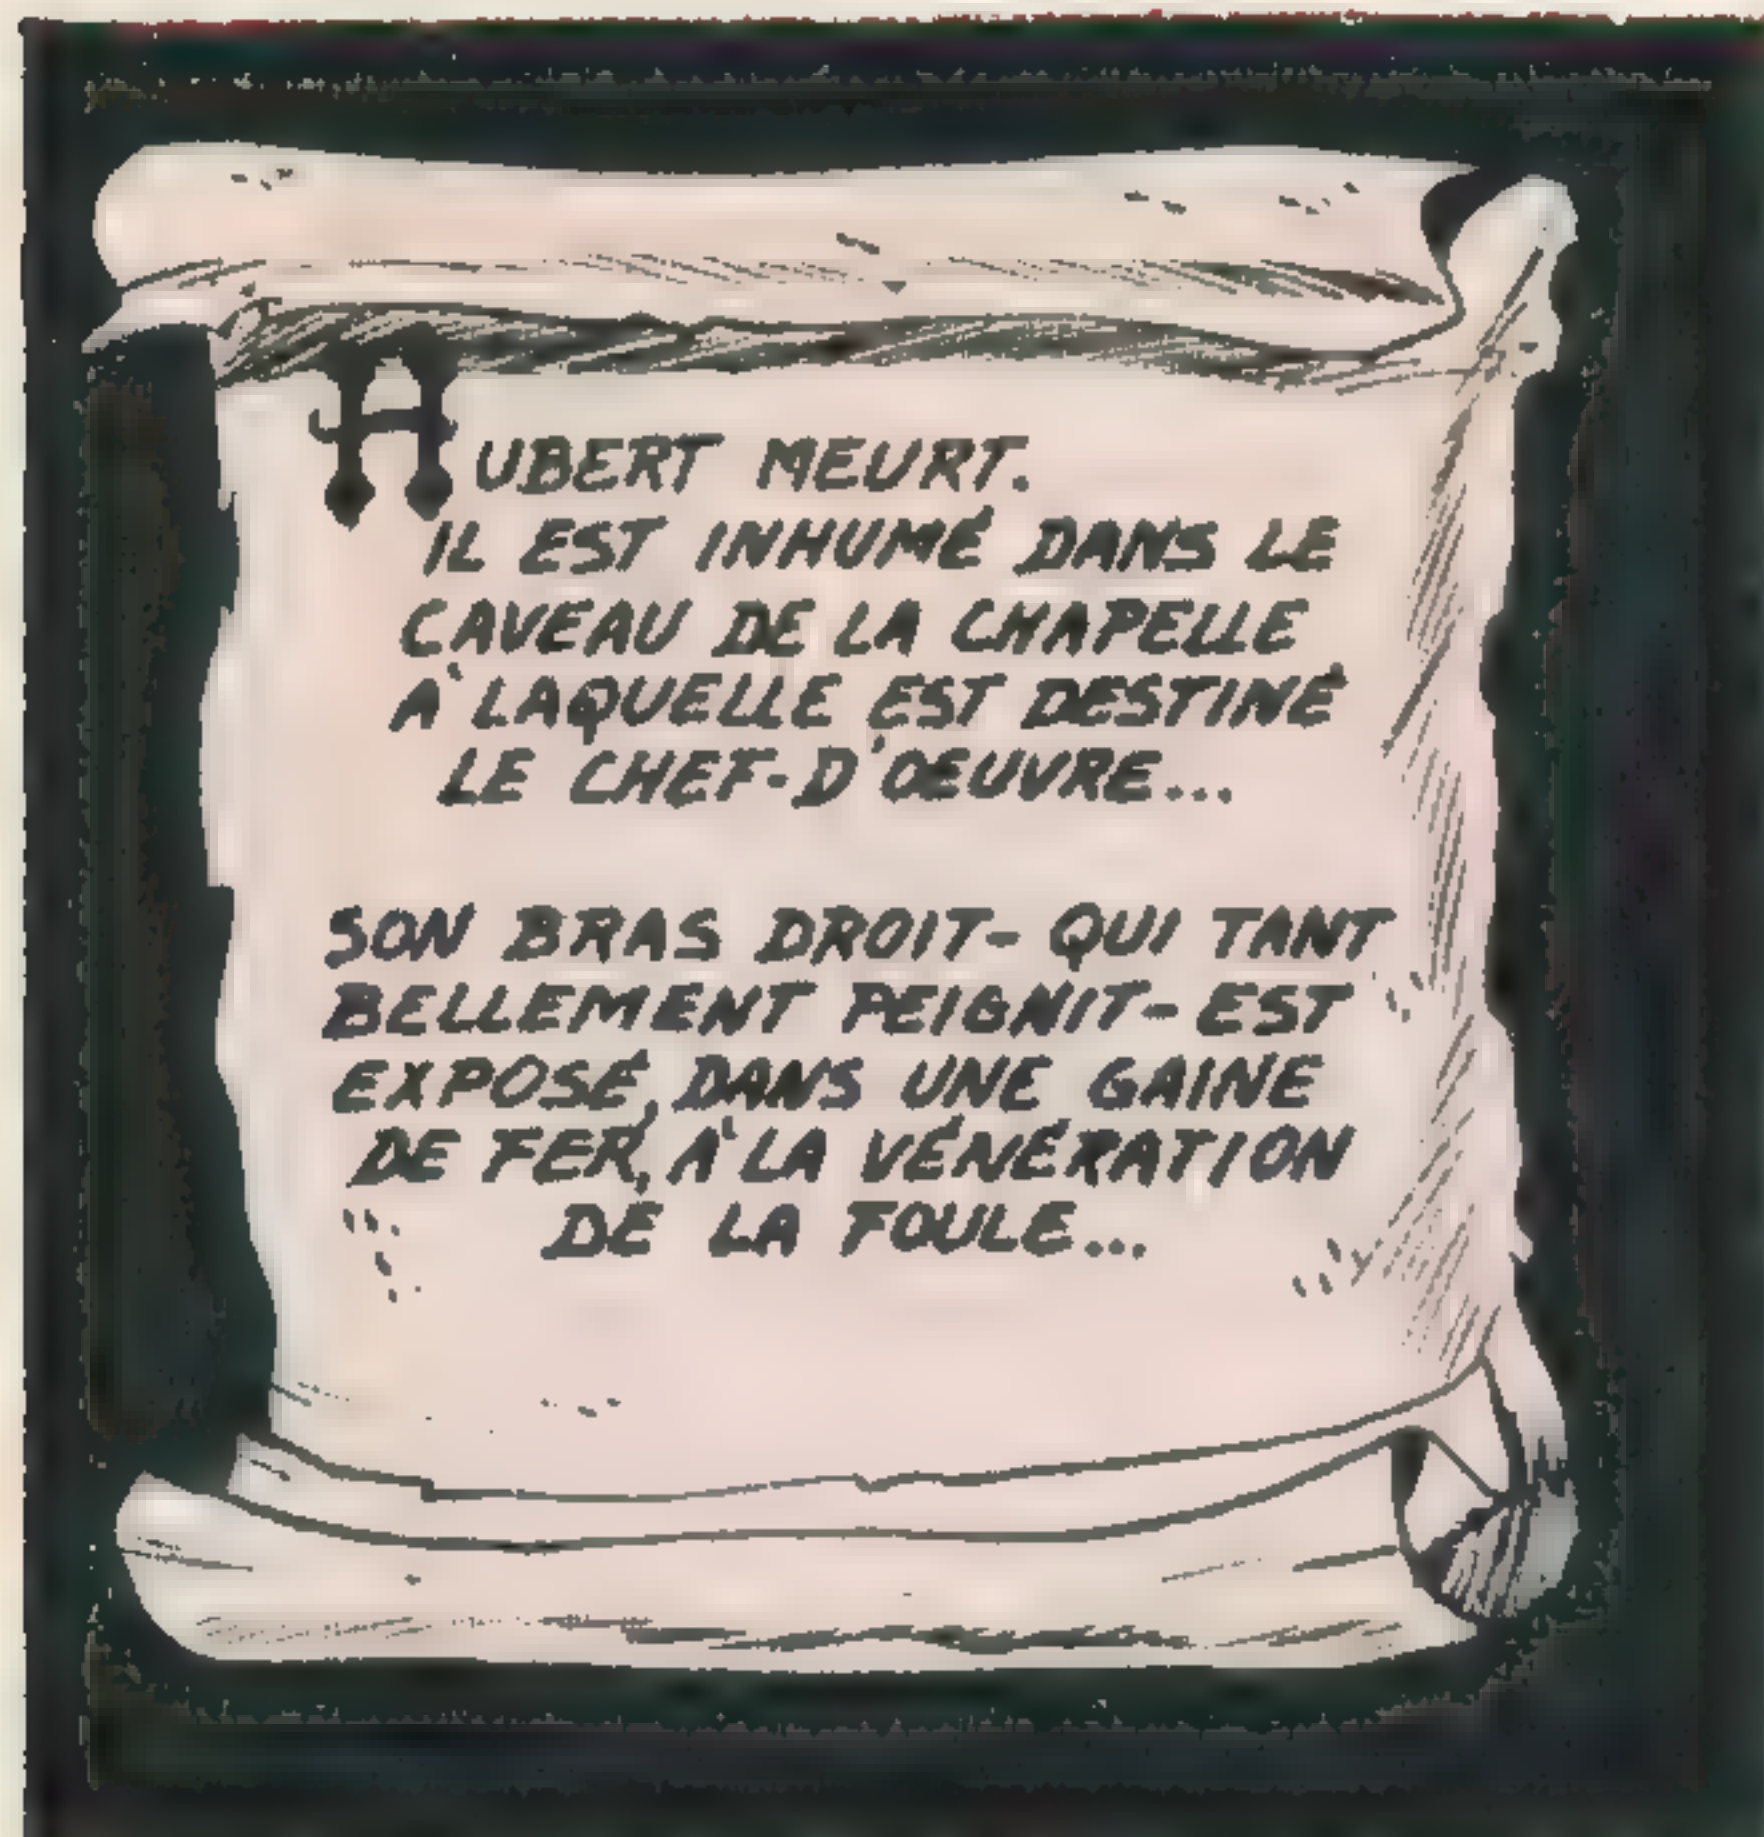 HUBERT MEURT.
IL EST INHUMÉ DANS LE
CAVEAU DE LA CHAPELLE
À LAQUELLE EST DESTINÉ
LE CHEF-D'OEUVRE...
SON BRAS DROIT- QUI TANT
BELLEMENT PEIGNIT- EST
EXPOSÉ, DANS UNE GAINE
DE FER, À LA VÉNÉRATION
DE LA FOULE...